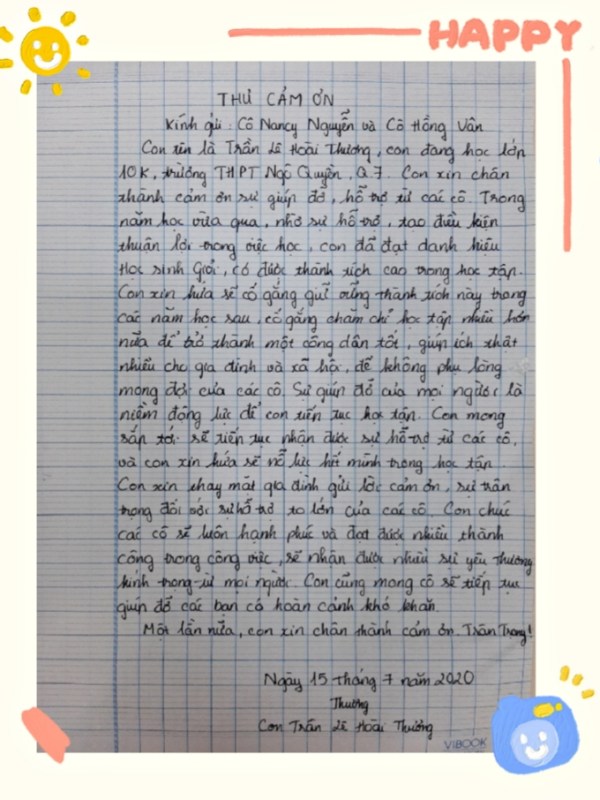 HAPPY
THƯ CẢM ƠN
Kính gửi: Cô Nancy Nguyễn và Cô Hồng Vân
Con tên là Trần Lê Hoài Thương, con đang học lớp
10K, trường THPT Ngô Quyền, Q7. Con xin chân
thành cảm ơn sự giúp đỡ, hỗ trợ từ các cô. Trong
năm học vừa qua, nhờ sự hỗ trợ, tạo điều kiện
thuận lợi trong việc học, con đã đạt danh hiệu
Học sinh Giỏi, có được thành tích cao trong học tập.
Con xin hứa sẽ cố gắng giữ vững thành tích này trong
các năm học sau, cố gắng chăm chỉ học tập nhiều hơn
nữa để trở thành một công dân tốt, giúp ích thật
nhiều cho gia đình và xã hội, để không phụ lòng
mong đợi của các cô. Sự giúp đỡ của mọi người là
niềm động lực để con tiếp tục học tập. Con mong
sắp tới sẽ tiếp tục nhận được sự hỗ trợ từ các cô,
và con xin hứa sẽ nỗ lực hết mình trong học tập.
Con xin thay mặt gia đình gửi lời cảm ơn, sự trân
trọng đối với sự hỗ trợ to lớn của các cô. Con chúc
các cô sẽ luôn hạnh phúc và đạt được nhiều thành
công trong công việc, sẽ nhận được nhiều sự yêu thương
kính trọng từ mọi người. Con cũng mong cô sẽ tiếp tục
giúp đỡ các bạn có hoàn cảnh khó khăn.
Một lần nữa, con xin chân thành cảm ơn. Trân Trọng!
Ngày 15 tháng 7 năm 2020
Thương
Con Trần Lê Hoài Thương
VIBOOK